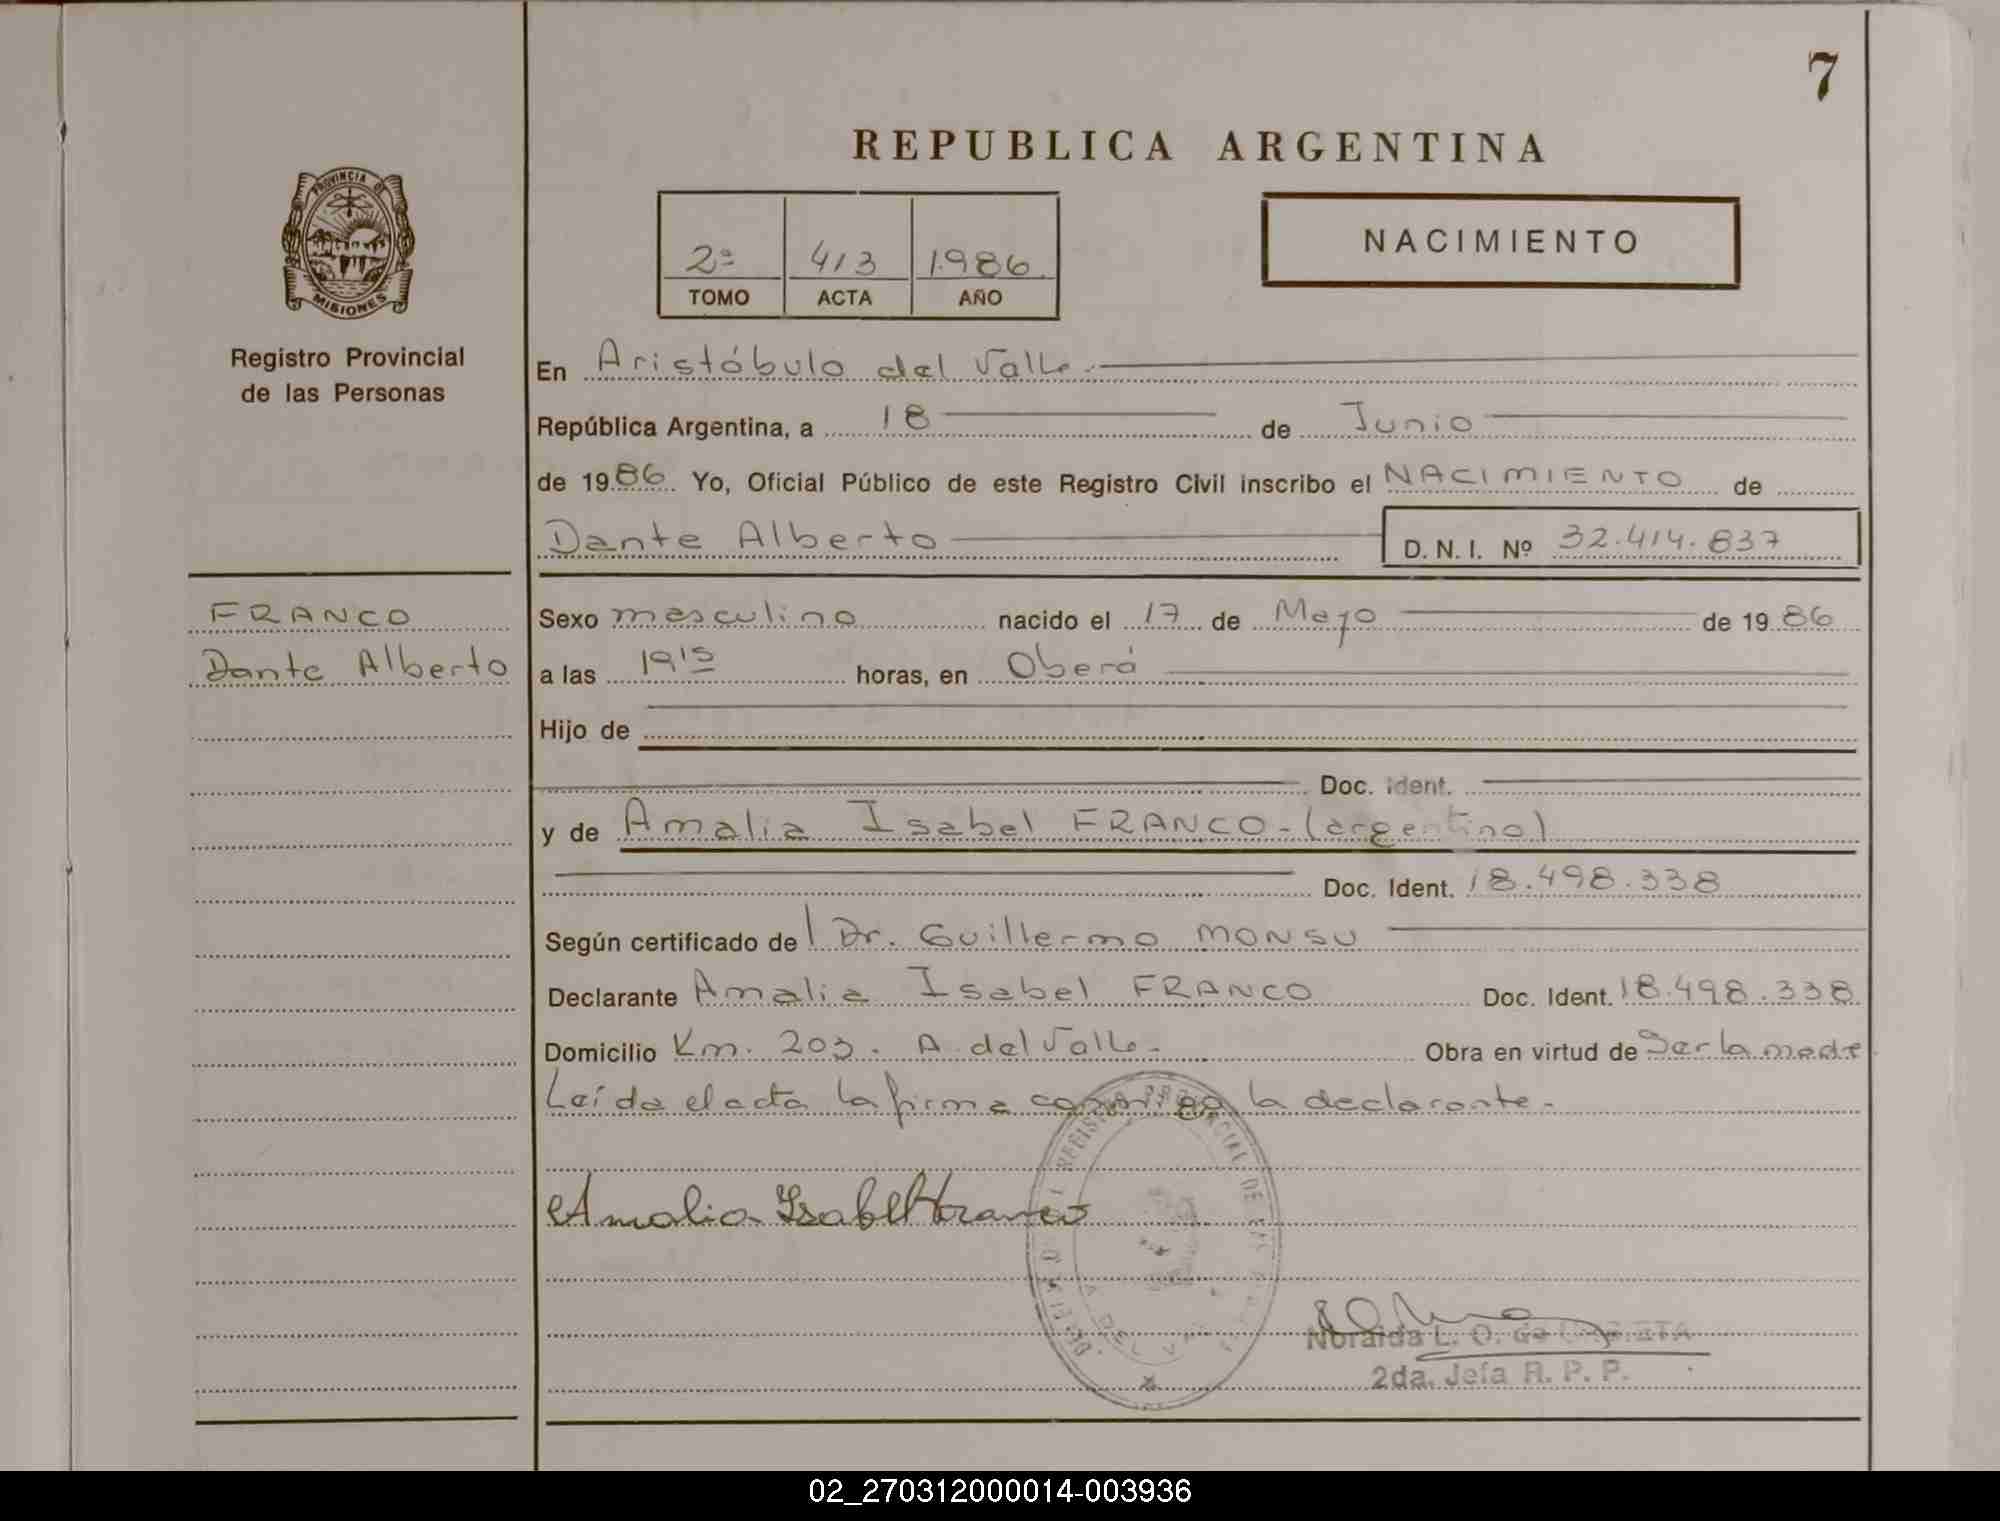 7
REPUBLICA ARGENTINA
PROVINCIA DE
MISIONES
Registro Provincial
de las Personas
2ª 413 1986
TOMO ACTA AÑO
NACIMIENTO
En Aristóbulo del Valle.
República Argentina, a 18 de Junio
de 1986. Yo, Oficial Público de este Registro Civil inscribo el NACIMIENTO de
Dante Alberto D. N. I. Nº 32.414.837
FRANCO
Dante Alberto
Sexo masculino nacido el 17 de Mayo de 1986
a las 19 15 horas, en Oberá
Hijo de
Doc. ident.
y de Amalia Isabel FRANCO - (argentina)
Doc. Ident. 18.498.338
Según certificado de Dr. Guillermo MONSU
Declarante Amalia Isabel FRANCO Doc. Ident. 18.498.338
Domicilio Km. 203. A. del Valle - Obra en virtud de Ser la madre
Leída el acta la firma conmigo la declarante.-
Amalia Isabel Franco
REGISTRO PROVINCIAL DE
A. DEL
Noraida L. O. de
2da. Jefa R. P. P.
02_270312000014-003936